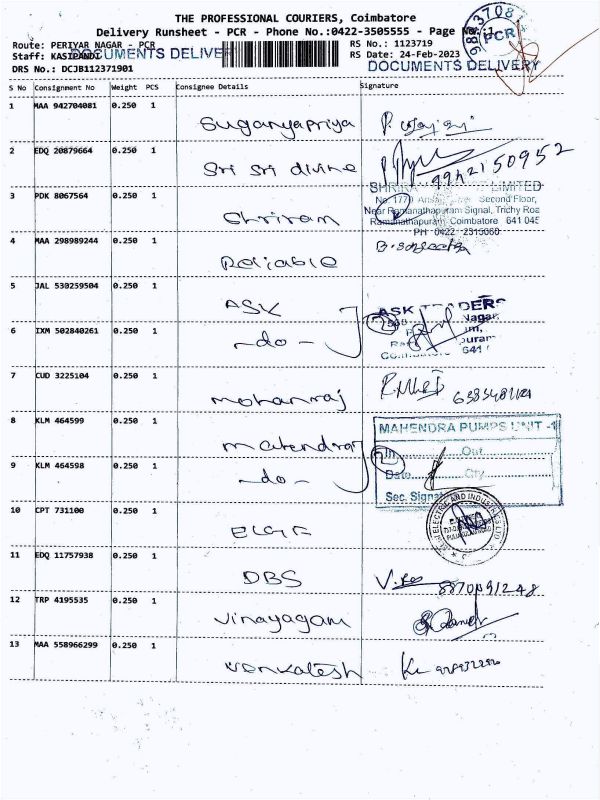 THE PROFESSIONAL COURIERS, Coimbatore
Delivery Runsheet - PCR - Phone No.:0422-3505555 - Page
Route: PERIYAR NAGAR - PCR RS No.: 1123719
Staff: KASIPANDI RS Date: 24-Feb-2023
DOCUMENTS DELIVER DOCUMENTS DELIVERY
PCR
DRS No.: DCJB112371901
S No Consignment No Weight PCS Consignee Details Signature
1 MAA 942704081 0.250 1 Suganyapriya
2 EDQ 20879664 0.250 1 Sri Sri divine 9942150952
SHRIRA LIMITED
No. 1770 Second Floor,
Near Ramanathapuram Signal, Trichy Roa
3 PDK 8067564 0.250 1 Shriram Ramanathapuram Coimbatore 641 045
PH 0422 2315060
4 MAA 298989244 0.250 1 Reliable
5 JAL 530259504 0.250 1 ASK ASK TRADERS
Nagar,
6 IXM 502840261 0.250 1 -do- 2
641
7 CUD 3225104 0.250 1 mohanraj
8 KLM 464599 0.250 1 mahendra MAHENDRA PUMPS UNIT -1
In Out
9 KLM 464598 0.250 1 -do- 2 Date Cty
Sec. Signat
10 CPT 731100 0.250 1 ELGI
11 EDQ 11757938 0.250 1 DBS 8870491248
12 TRP 4195535 0.250 1 Vinayagam
13 MAA 558966299 0.250 1 Venkatesh